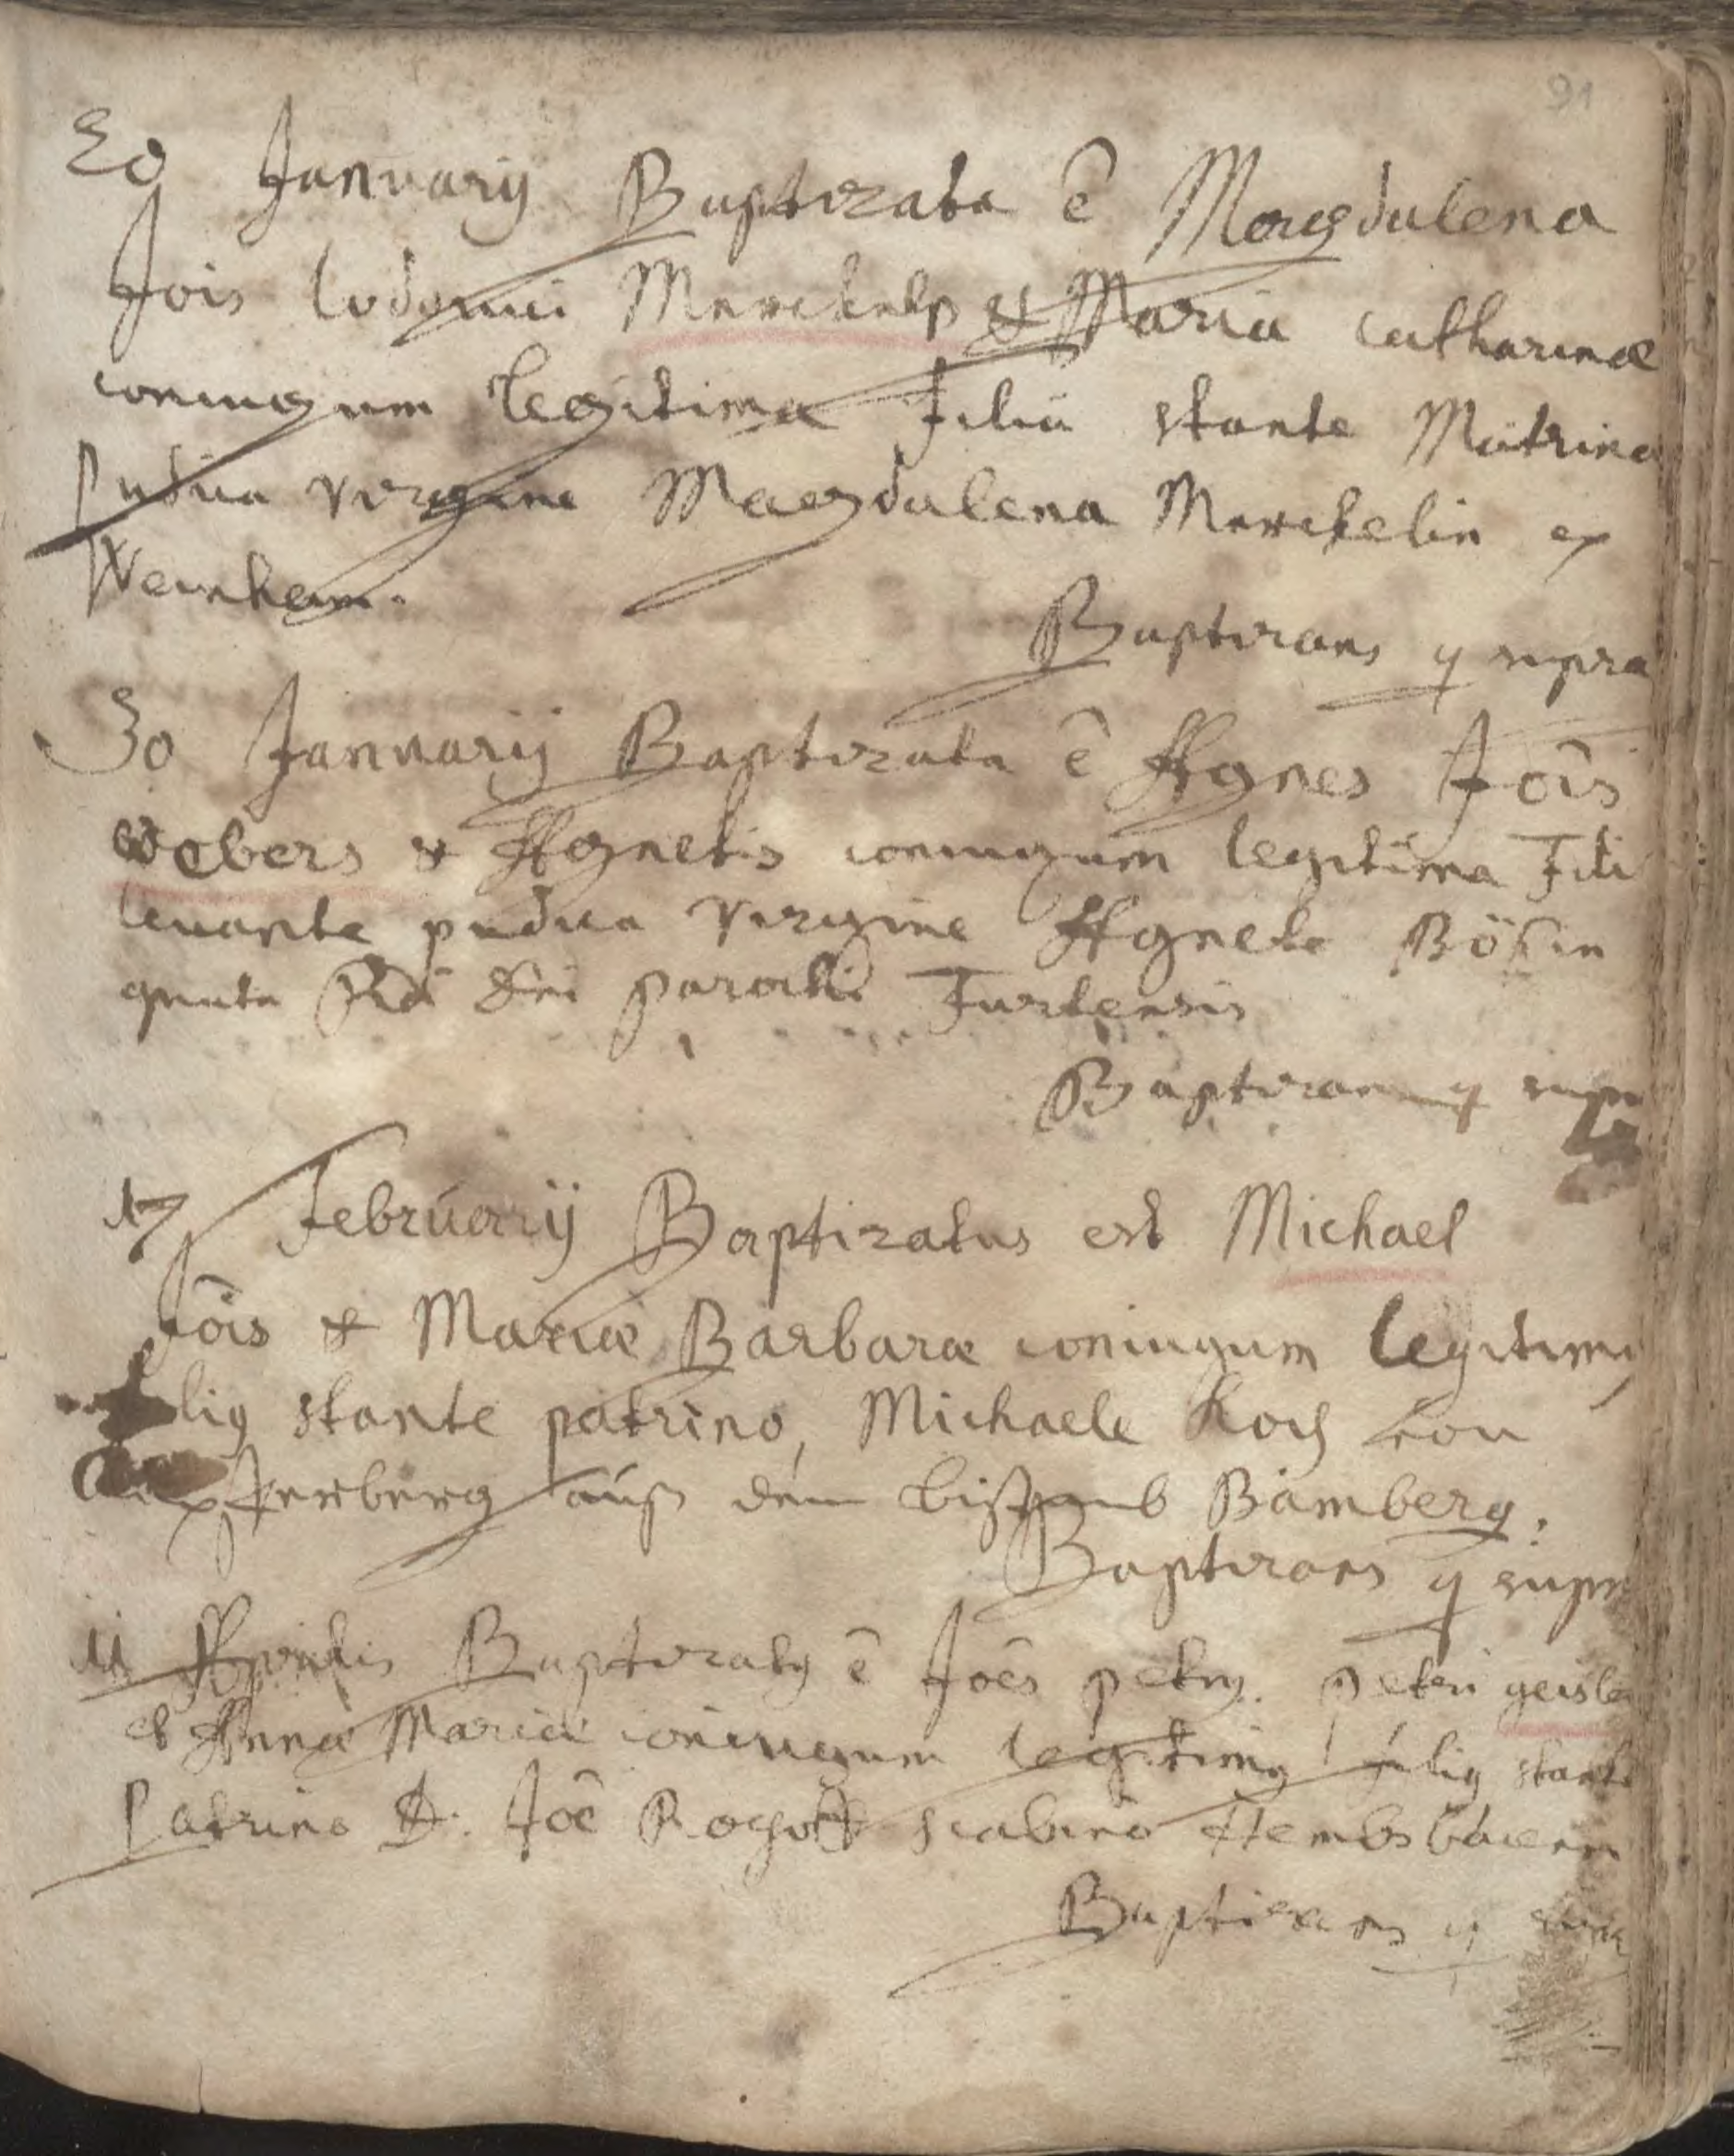 91
20 Januarij Baptizata ē Magdalena
Jois Lodovici Merckels & Maria Catharinæ
coniugum legitima Filia stante Matrina
Pudica virgine Magdalena Merckelin ex
Weinheim.
Baptizans q supra
30 Januarij Baptizata ē Agnes Jōis
Webers & Agnetis coniugum legitima Fili
levante pudica virgine Agnete Bösin
gnata Parochi Furtensis
Baptizans q supr
17 Februarij Baptizatus est Michael
Jōis & Mariæ Barbaræ coniugum legitimq
liq stante patrino, Michaele Koch von
auß dem Bistumb Bamberg.
Baptizans q supra
11 Aprilis Baptizatq ē Joēs petrq. petri geisle
et Annæ Mariæ coniugum legitimq filiq stante
Patrino D. Joē scabino Hembsbacen
Baptizans q supra